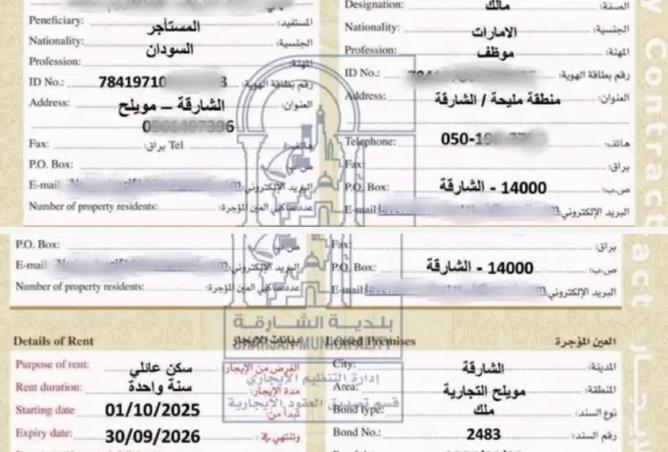 Designation: مالك الصفة:
Peneficiary: المستأجر المستفيد:
Nationality: الامارات الجنسية:
Nationality: السودان الجنسية:
Profession: موظف المهنة:
Profession: المهنة:
ID No.: رقم بطاقة الهوية:
ID No.: 78419710 3 رقم بطاقة الهوية:
Address: منطقة مليحة / الشارقة العنوان:
Address: الشارقة – مويلح العنوان:
Telephone: 050-1 هاتف:
Fax: Tel براق: هاتف:
Fax: براق:
P.O. Box: ص.ب:
P.O. Box: 14000 - الشارقة ص.ب:
E-mail البريد الإلكتروني:
E-mail: البريد الإلكتروني:
Number of property residents: العين المؤجرة:
P.O. Box: ص.ب:
Fax: براق:
E-mail البريد الإلكتروني:
P.O. Box: 14000 - الشارقة ص.ب:
Number of property residents: العين المؤجرة:
E-mail: البريد الإلكتروني:
بلدية الشارقة
SHARJAH MUNICIPALITY
Details of Rent بيانات الإيجار
Leased Premises العين المؤجرة
Purpose of rent: سكن عائلي الغرض من الإيجار:
City: الشارقة المدينة:
إدارة التنظيم الإيجاري
Rent duration: سنة واحدة مدة الإيجار:
Area: مويلح التجارية المنطقة:
قسم تصديق العقود الإيجارية
Starting date 01/10/2025 تبدأ من:
Bond type: ملك نوع السند:
Expiry date: 30/09/2026 وتنتهي في:
Bond No.: 2483 رقم السند:
y Contract